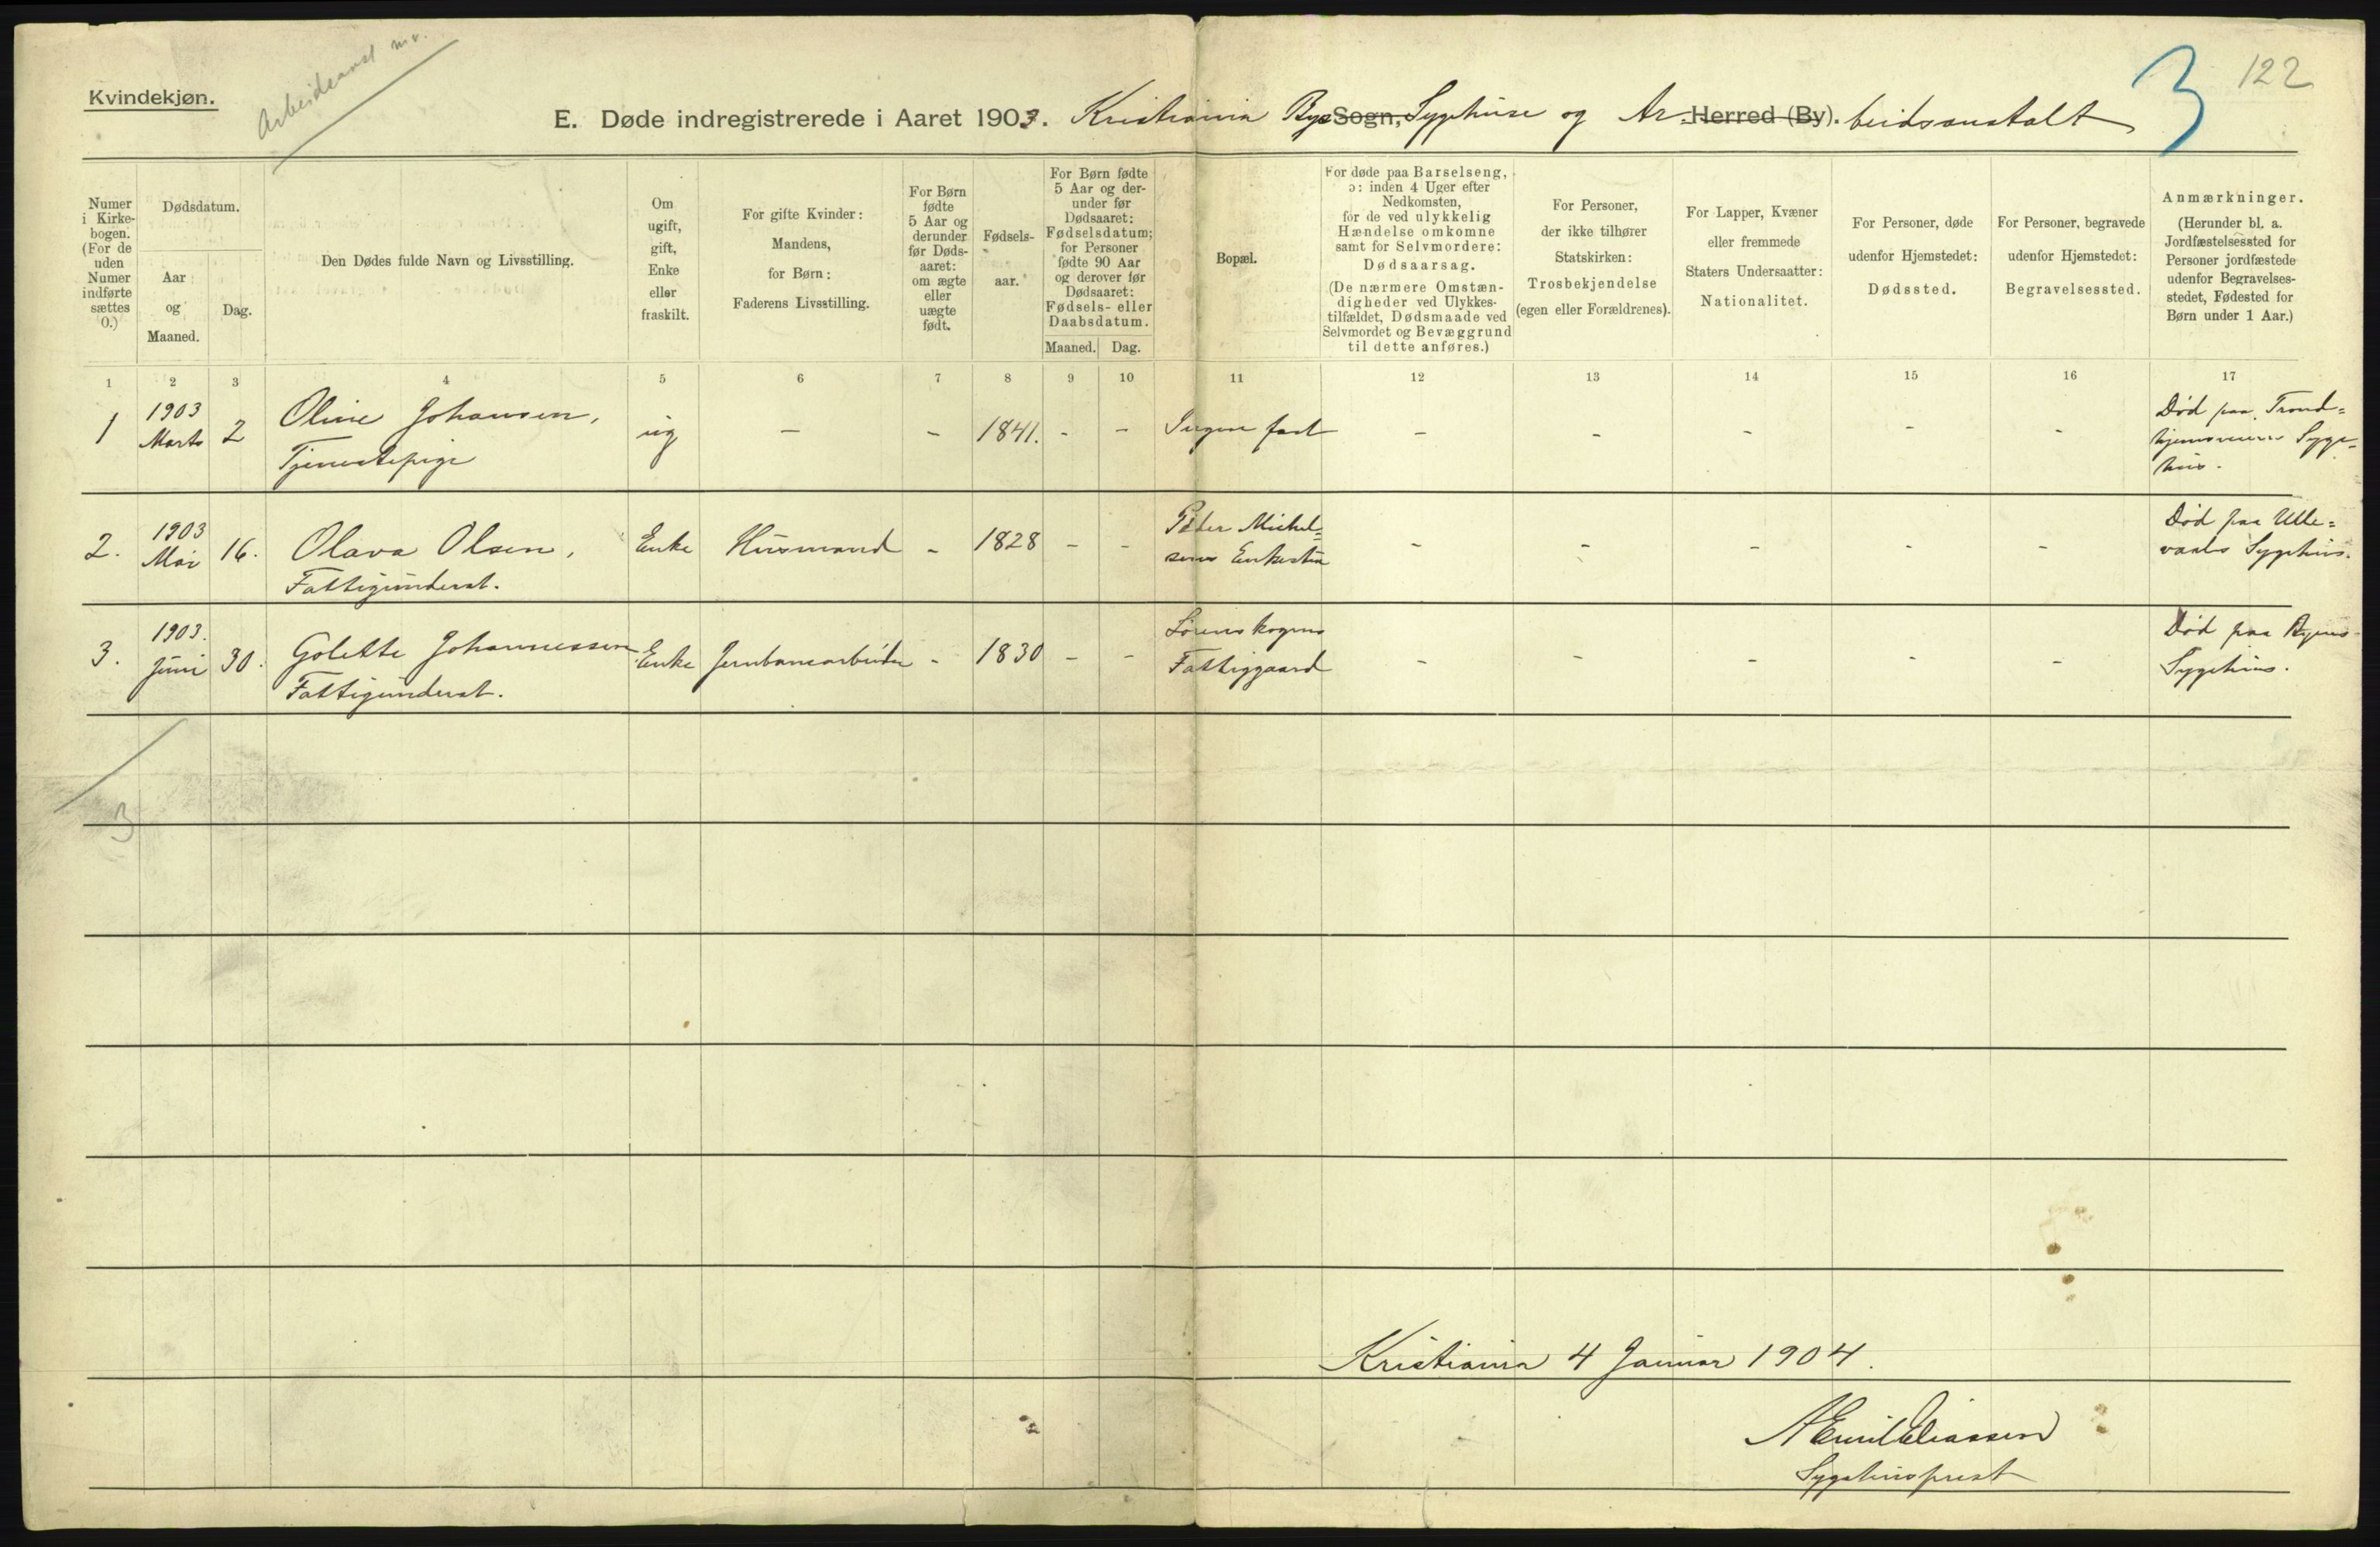 Arbeidsanst m.v.
122
3
Kvindekjøn.
E. Døde indregistrerede i Aaret 1903. Kristiania Bys Sogn, Sygehuse og Ar- Herred (By). beidsanstalt
Numer
i Kirke-
bogen.
(For de
uden
Numer
indførte
sættes
0.)
Dødsdatum.
Aar
og
Maaned.
Dag.
Den Dødes fulde Navn og Livsstilling.
Om
ugift,
gift,
Enke
eller
fraskilt.
For gifte Kvinder:
Mandens,
for Børn:
Faderens Livsstilling.
For Børn
fødte
5 Aar og
derunder
før Døds-
aaret:
om ægte
eller
uægte
født.
Fødsels-
aar.
For Børn fødte
5 Aar og der-
under før
Dødsaaret:
Fødselsdatum;
for Personer
fødte 90 Aar
og derover før
Dødsaaret:
Fødsels- eller
Daabsdatum.
Maaned. Dag.
Bopæl.
For døde paa Barselseng,
ɔ: inden 4 Uger efter
Nedkomsten,
for de ved ulykkelig
Hændelse omkomne
samt for Selvmordere:
Dødsaarsag.
(De nærmere Omstæn-
digheder ved Ulykkes-
tilfældet, Dødsmaade ved
Selvmordet og Bevæggrund
til dette anføres.)
For Personer,
der ikke tilhører
Statskirken:
Trosbekjendelse
(egen eller Forældrenes).
For Lapper, Kvæner
eller fremmede
Staters Undersaatter:
Nationalitet.
For Personer, døde
udenfor Hjemstedet:
Dødssted.
For Personer, begravede
udenfor Hjemstedet:
Begravelsessted.
Anmærkninger.
(Herunder bl. a.
Jordfæstelsessted for
Personer jordfæstede
udenfor Begravelses-
stedet, Fødested for
Børn under 1 Aar.)
1 2 3 4 5 6 7 8 9 10 11 12 13 14 15 16 17
1 1903 Marts 2 Oline Johansen,
Tjenestepige
ug - - 1841. - - Ingen fast - - - - -
Død paa Trond=
hjemsveiens Syge=
hus.
2. 1903 Mai 16. Olava Olsen,
Fattigunderst.
Enke Husmand - 1828 - -
Peder Michel=
sens Enkestue
- - - - -
Død paa Ulle=
vaals Sygehus.
3. 1903. Juni 30. Golette Johannessen
Fattigunderst.
Enke Jernbanearbeider - 1830 - -
Lørenskogens
Fattiggaard
- - - - -
Død paa Byens
Sygehus.
3
Kristiania 4 Januar 1904.
A Emil Eliassen
Sygehusprest